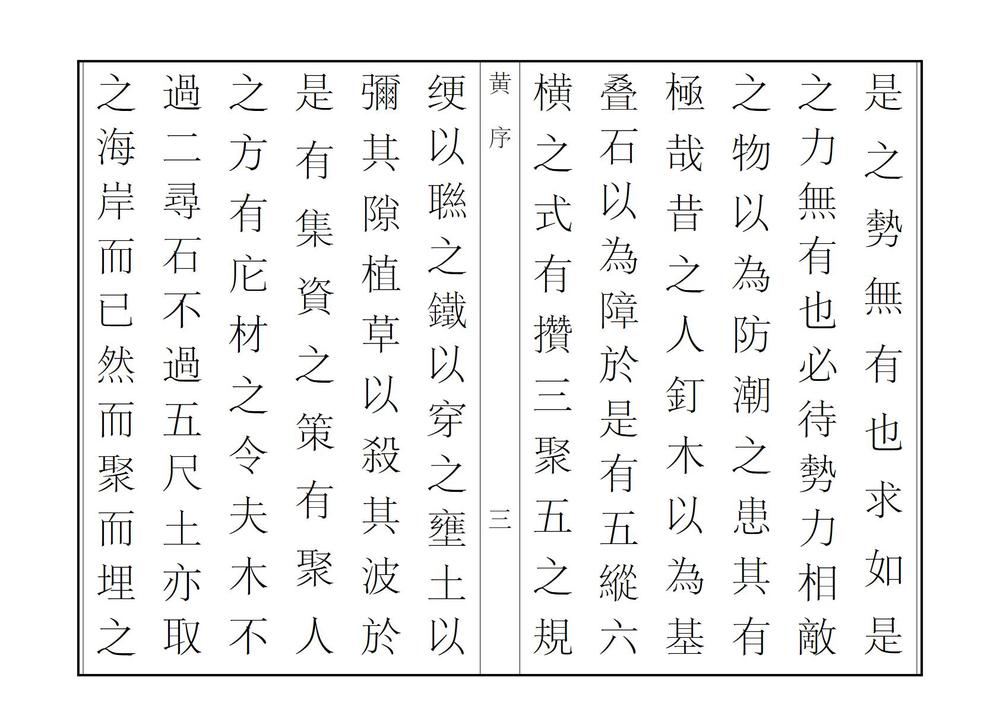 是之勢無有也求如是
之力無有也必待勢力相敵
之物以為防潮之患其有
極哉昔之人釘木以為基
叠石以為障於是有五縱六
横之式有攢三聚五之規
黄序 三
绠以聯之鐵以穿之壅土以
彌其隙植草以殺其波於
是有集資之策有聚人
之方有庀材之令夫木不
過二尋石不過五尺土亦取
之海岸而已然而聚而埋之